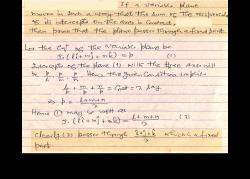 If a variable plane
moves in such a way that the sum of the reciprocals
of its intercepts on the axes is constant,
then prove that the plane passes through a fixed point.
Let the Eqn of the variable plane be
r̄.(lî+mĵ+nk̂)=p (1)
Intercepts of the plane (1) with the three axes will
be p/l, p/m, p/n. Hence the given condition implies
l/p + m/p + n/p = Const = λ say
⇒ p = (l+m+n)/λ
Hence (1) may be written as
r̄.(lî+mĵ+nk̂) = (l+m+n)/λ (2)
Clearly (2) passes through which is a fixed
point.